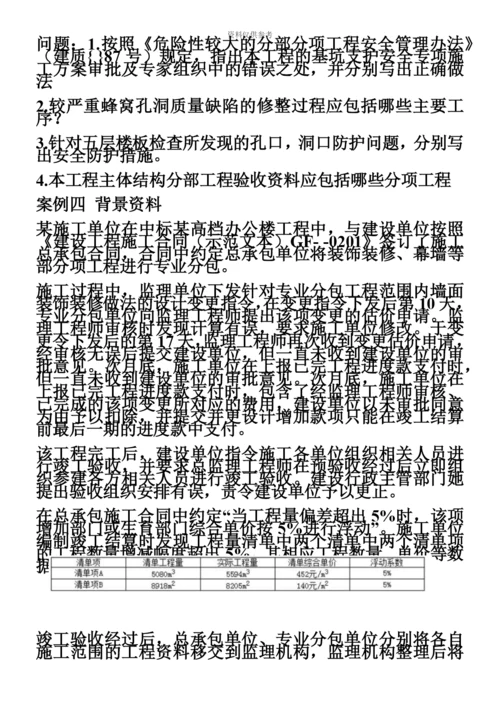 资料仅供参考
问题：1.按照《危险性较大的分部分项工程安全管理办法》
（建质[ ]87号）规定，指出本工程的基坑支护安全专项施
工方案审批及专家组织中的错误之处，并分别写出正确做
法
2.较严重蜂窝孔洞质量缺陷的修整过程应包括哪些主要工
序？
3.针对五层楼板检查所发现的孔口，洞口防护问题，分别写
出安全防护措施。
4.本工程主体结构分部工程验收资料应包括哪些分项工程
案例四 背景资料
某施工单位在中标某高档办公楼工程中，与建设单位按照
《建设工程施工合同（示范文本）GF- -0201》签订了施工
总承包合同，合同中约定总承包单位将装饰装修、幕墙等
部分项工程进行专业分包。
施工过程中，监理单位下发针对专业分包工程范围内墙面
装饰装修做法的设计变更指令,在变更指令下发后第10天,
专业分包单位向监理工程师提出该项变更的估价申请。监
理工程师审核时发现计算有误，要求施工单位修改。于变
更令下发后的第17天,监理工程师再次收到变更估价申请,
经审核无误后提交建设单位，但一直未收到建设单位的审
批意见。次月底，施工单位在上报已完工程进度款支付时，
但一直未收到建设单位的审批意见。次月底，施工单位在
上报已完工程进度款支付时，包含了经监理工程师审核、
已完成的该项变更所对应的费用，建设单位以未审批同意
为由予以扣除，并提交并更设计增加款项只能在竣工结算
前最后一期的进度款中支付。
该工程完工后，建设单位指令施工各单位组织相关人员进
行竣工验收，并要求总监理工程师在预验收经过后立即组
织参建各方相关人员进行竣工验收。建设行政主管部门她
提出验收组织安排有误，责令建设单位予以更正。
在总承包施工合同中约定“当工程量偏差超出5%时，该项
增加部门或生育部门综合单价按5%进行浮动”。施工单位
编制竣工结算时发现工程量清单中两个清单中两个清单项
的工程数量增减幅度超出5%，其相应工程数量、单价等数
据
清单项 清单工程量 实际工程量 清单综合单价 浮动系数
清单项A 5080m³ 5594m³ 452元/m³ 5%
清单项B 8918m² 8205m² 140元/m² 5%
竣工验收经过后，总承包单位、专业分包单位分别将各自
施工范围的工程资料移交到监理机构，监理机构整理后将